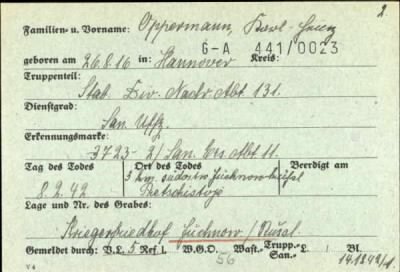 2.
Familien- u. Vorname: Oppermann, Karl-Heinz
G-A 441/0023
geboren am 26.8.16 in: Hannover Kreis:
Truppenteil:
Stab Div. Nachr. Abt 131.
Dienstgrad:
San. Uffz.
Erkennungsmarke:
-3723- 2/San. Ers. Abt. 11.
Tag des Todes Ort des Todes Beerdigt am
3 km südostw. Juchnow
8.2.42
Lage und Nr. des Grabes:
Kriegerfriedhof Juchnow /
Gemeldet durch: V.L. 5 Ref I. W.G.O. Wast.- Trupp.- San.- L. Bl.
56
14.1242/1.
V 4